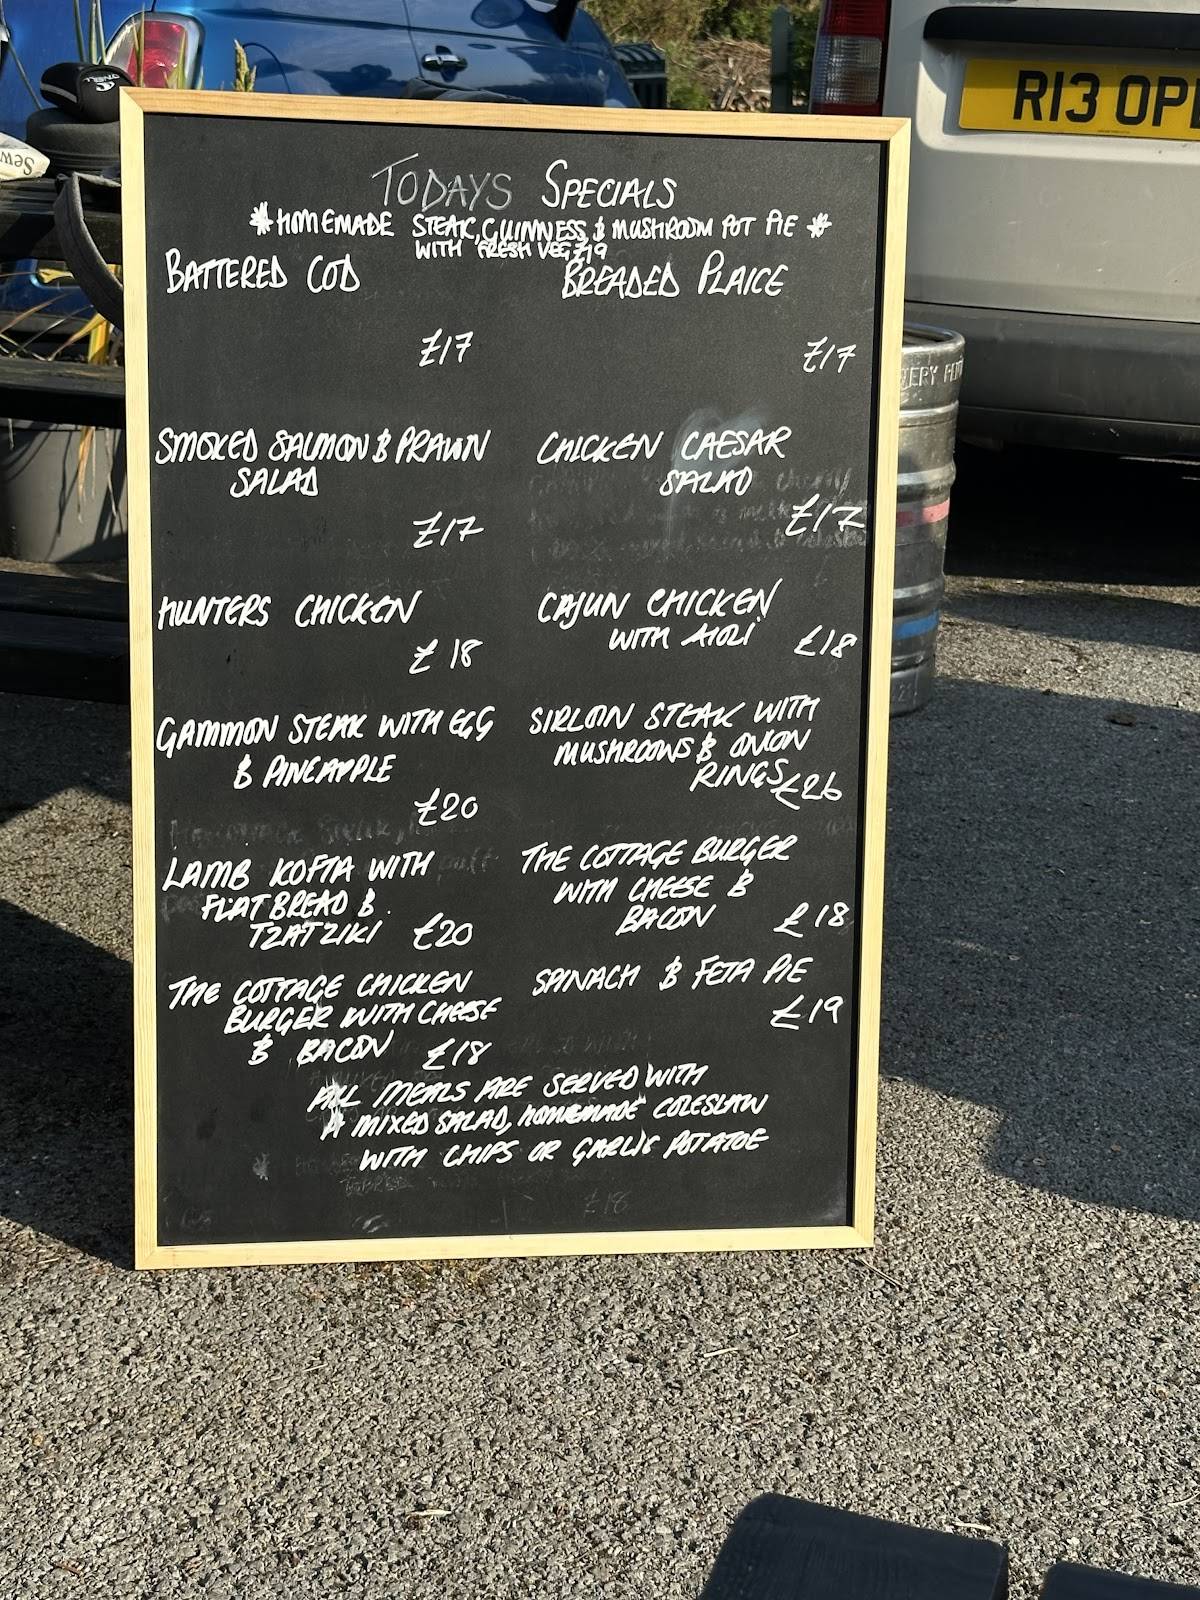 TODAYS SPECIALS
* HOMEMADE STEAK, GUINNESS & MUSHROOM POT PIE *
WITH FRESH VEG £19
BATTERED COD
£17
BREADED PLAICE
£17
SMOKED SALMON & PRAWN
SALAD
£17
CHICKEN CAESAR
SALAD
£17
HUNTERS CHICKEN
£18
CAJUN CHICKEN
WITH AIOLI £18
GAMMON STEAK WITH EGG
& PINEAPPLE
£20
SIRLOIN STEAK WITH
MUSHROOMS & ONION
RINGS £26
LAMB KOFTA WITH
FLAT BREAD &
TZATZIKI £20
THE COTTAGE BURGER
WITH CHEESE &
BACON £18
THE COTTAGE CHICKEN
BURGER WITH CHEESE
& BACON £18
SPINACH & FETA PIE
£19
ALL MEALS ARE SERVED WITH
A MIXED SALAD, HOMEMADE COLESLAW
WITH CHIPS OR GARLIC POTATOE
£18
R13 OP
O'NEILL
Sew